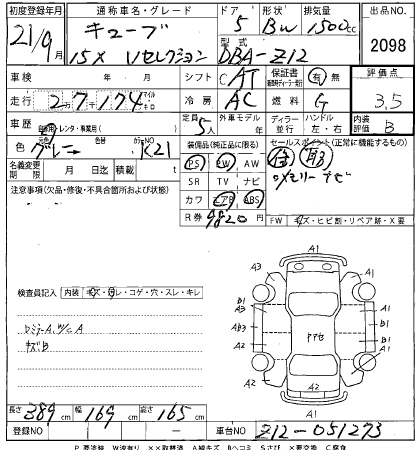 初度登録年月 通称車名・グレード ドア 形状 排気量 出品NO.
21/9月 キューブ 5 BW 1500cc
15X Vセレクション 型式 DBA-Z12 2098
車検 年 月 シフト CAT 保証書 有・無 評価点
走行 27,174 km マイル 冷房 AC 燃料 G 3.5
車歴 自家用・レンタ・事業用( ) 定員 5人 外車モデル 年 ディーラー 並行 ハンドル 左・右 内装評価 B
色 グレー 色替 カラーNO K21 装備品(純正品に限る) セールスポイント(正常に機能するもの)
名義変更期限 月 日迄 積載 t PS PW AW
注意事項(欠品・修復・不具合箇所および状態) SR TV ナビ
カワ エアB ABS
R券 9820円 FW キズ・ヒビ割・リペア跡・X要
検査員記入 内装 キズ・ヨゴレ・コゲ・穴・スレ・キレ
キズB
A1
A3 A1
A1 B1
AB3 B1
A1 A1
A2
A1
長さ 389cm 幅 169cm 高さ 165cm
登録NO 車台NO Z12-051273
P 要塗装 W波有り XX取替済 A線キズ Bヘコミ Sさび X要交換 C腐食